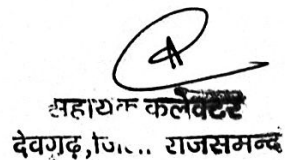 सहायक कलेक्टर
देवगढ़, जि... राजसमन्द